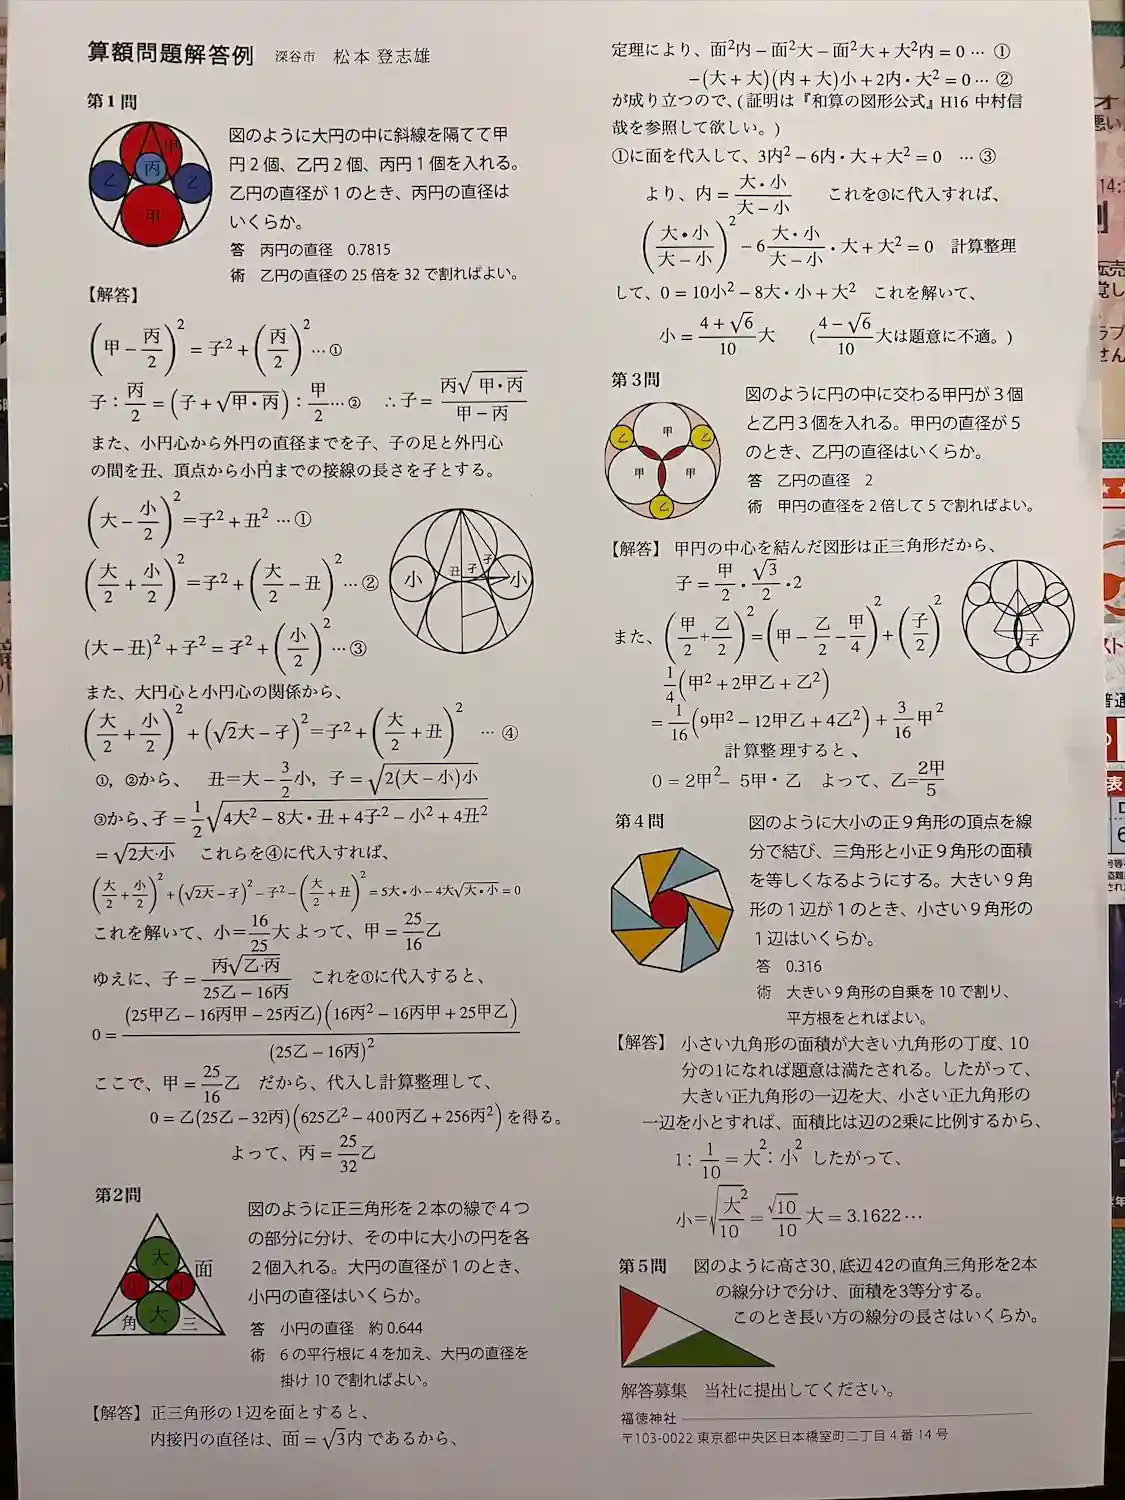 算額問題解答例 深谷市 松本 登志雄
第1問
図のように大円の中に斜線を隔てて甲
円2個、乙円2個、丙円1個を入れる。
乙円の直径が1のとき、丙円の直径は
いくらか。
答 丙円の直径 0.7815
術 乙円の直径の25倍を32で割ればよい。
甲
丙
乙 乙
甲
【解答】
(甲−丙/2)² = 子² + (丙/2)² …①
子:丙/2 = (子+√甲・丙):甲/2 …② ∴子= 丙√甲・丙/甲−丙
また、小円心から外円の直径までを子、子の足と外円心
の間を丑、頂点から小円までの接線の長さを孑とする。
(大−小/2)² =子²+丑² …①
(大/2+小/2)² =子²+(大/2−丑)² …②
(大−丑)²+子²=孑²+(小/2)² …③
小 丑 孑 子 小
また、大円心と小円心の関係から、
(大/2+小/2)²+(√2大−孑)²=子²+(大/2+丑)² … ④
①, ②から、 丑=大−3/2小, 子=√2(大−小)小
③から、孑=1/2√4大²−8大・丑+4子²−小²+4丑²
=√2大·小 これらを④に代入すれば、
(大/2+小/2)²+(√2大−孑)²−子²−(大/2+丑)²=5大・小−4大√大・小=0
これを解いて、小=16/25大 よって、甲=25/16乙
ゆえに、子= 丙√乙·丙/25乙−16丙 これを①に代入すると、
0= (25甲乙−16丙甲−25丙乙)(16丙²−16丙甲+25甲乙)/(25乙−16丙)²
ここで、甲=25/16乙 だから、代入し計算整理して、
0=乙(25乙−32丙)(625乙²−400丙乙+256丙²)を得る。
よって、丙=25/32乙
第2問
図のように正三角形を2本の線で4つ
の部分に分け、その中に大小の円を各
2個入れる。大円の直径が1のとき、
小円の直径はいくらか。
答 小円の直径 約0.644
術 6の平行根に4を加え、大円の直径を
掛け10で割ればよい。
大 面
小 小
大
角 三
【解答】正三角形の1辺を面とすると、
内接円の直径は、面=√3内 であるから、
定理により、面²内−面²大−面²大+大²内=0 … ①
−(大+大)(内+大)小+2内・大²=0 … ②
が成り立つので、(証明は『和算の図形公式』H16 中村信
哉を参照して欲しい。)
①に面を代入して、3内²−6内・大+大²=0 … ③
より、内= 大・小/大−小 これを③に代入すれば、
(大・小/大−小)² −6 大・小/大−小 ・大+大²=0 計算整理
して、0=10小²−8大・小+大² これを解いて、
小= 4+√6/10 大 (4−√6/10 大は題意に不適。)
第3問
図のように円の中に交わる甲円が3個
と乙円3個を入れる。甲円の直径が5
のとき、乙円の直径はいくらか。
答 乙円の直径 2
術 甲円の直径を2倍して5で割ればよい。
乙 甲 乙
甲 甲
乙
【解答】甲円の中心を結んだ図形は正三角形だから、
子= 甲/2・√3/2・2
また、(甲/2+乙/2)²=(甲−乙/2−甲/4)²+(子/2)²
子
1/4(甲²+2甲乙+乙²)
=1/16(9甲²−12甲乙+4乙²)+3/16甲²
計算整理すると、
0=2甲²−5甲・乙 よって、乙=2甲/5
第4問
図のように大小の正9角形の頂点を線
分で結び、三角形と小正9角形の面積
を等しくなるようにする。大きい9角
形の1辺が1のとき、小さい9角形の
1辺はいくらか。
答 0.316
術 大きい9角形の自乗を10で割り、
平方根をとればよい。
【解答】 小さい九角形の面積が大きい九角形の丁度、10
分の1になれば題意は満たされる。したがって、
大きい正九角形の一辺を大、小さい正九角形の
一辺を小とすれば、面積比は辺の2乗に比例するから、
1:1/10=大²:小² したがって、
小=√大²/10=√10/10 大=3.1622…
第5問 図のように高さ30, 底辺42の直角三角形を2本
の線分けで分け、面積を3等分する。
このとき長い方の線分の長さはいくらか。
解答募集 当社に提出してください。
福徳神社
〒103-0022 東京都中央区日本橋室町二丁目4番14号